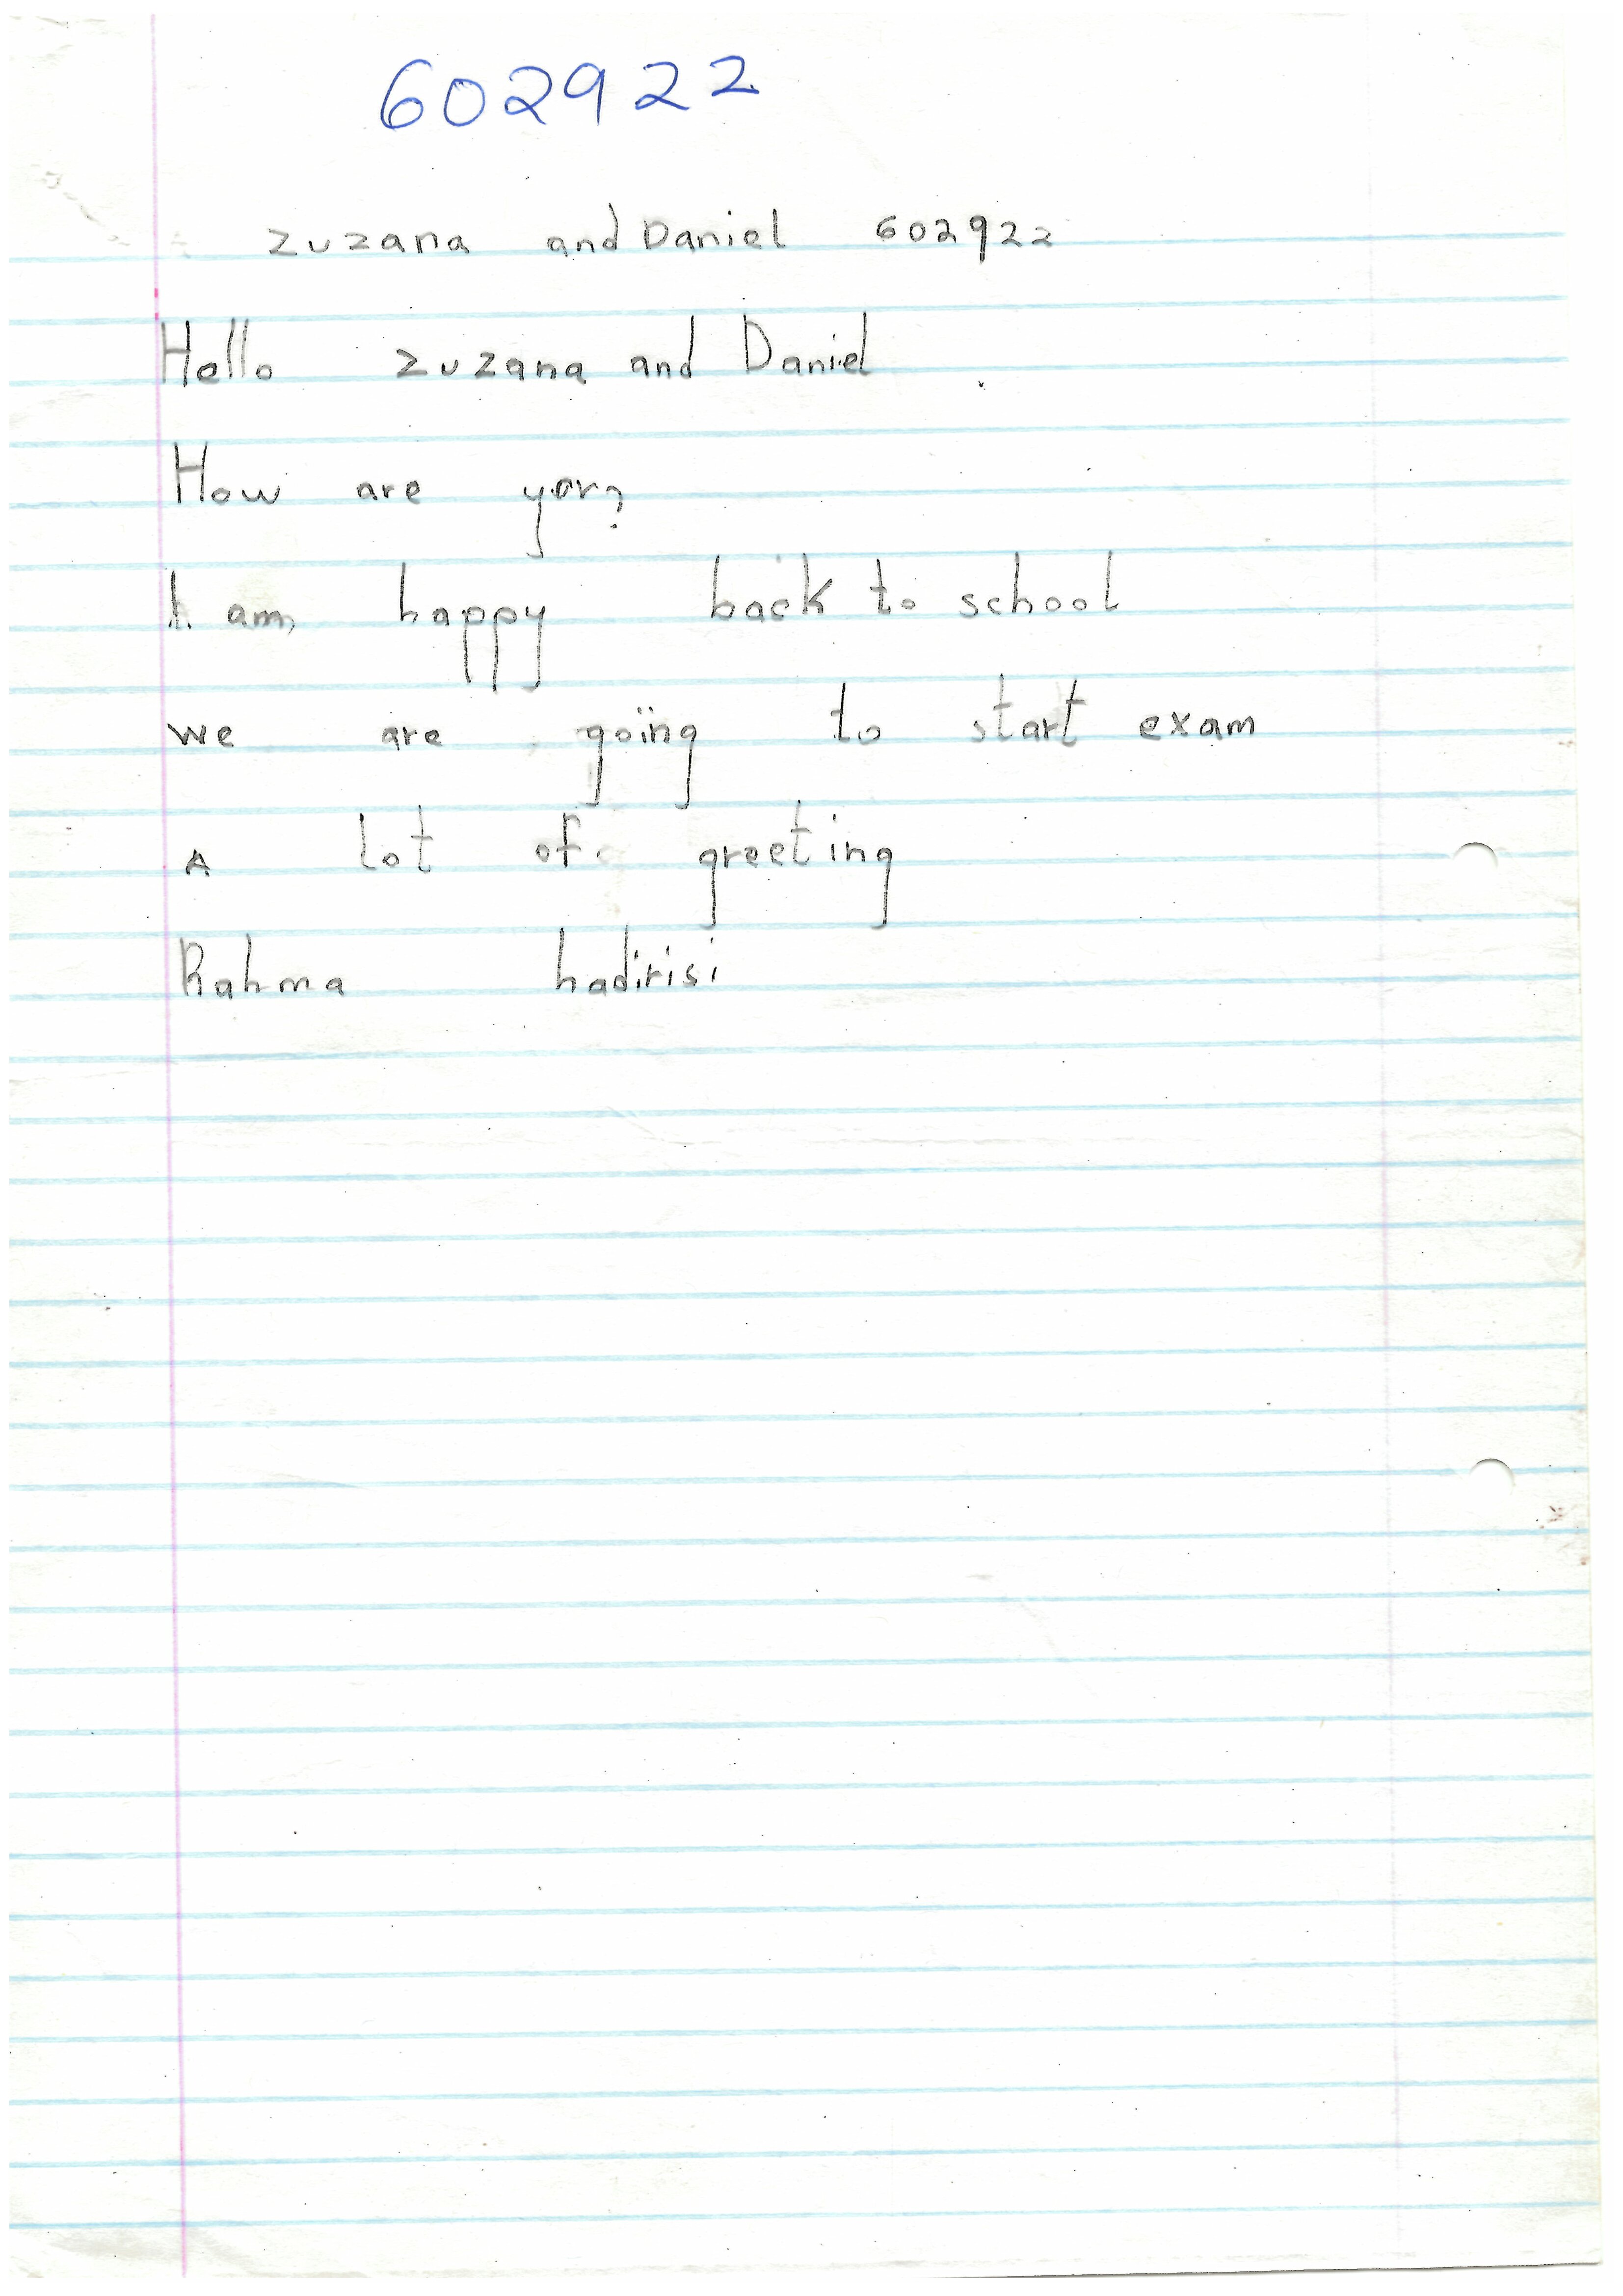 602922
zuzana and Daniel 602922
Hello zuzana and Daniel
How are yor?
I am happy back to school
we are going to start exam
A lot of greeting
Rahma hadirisi